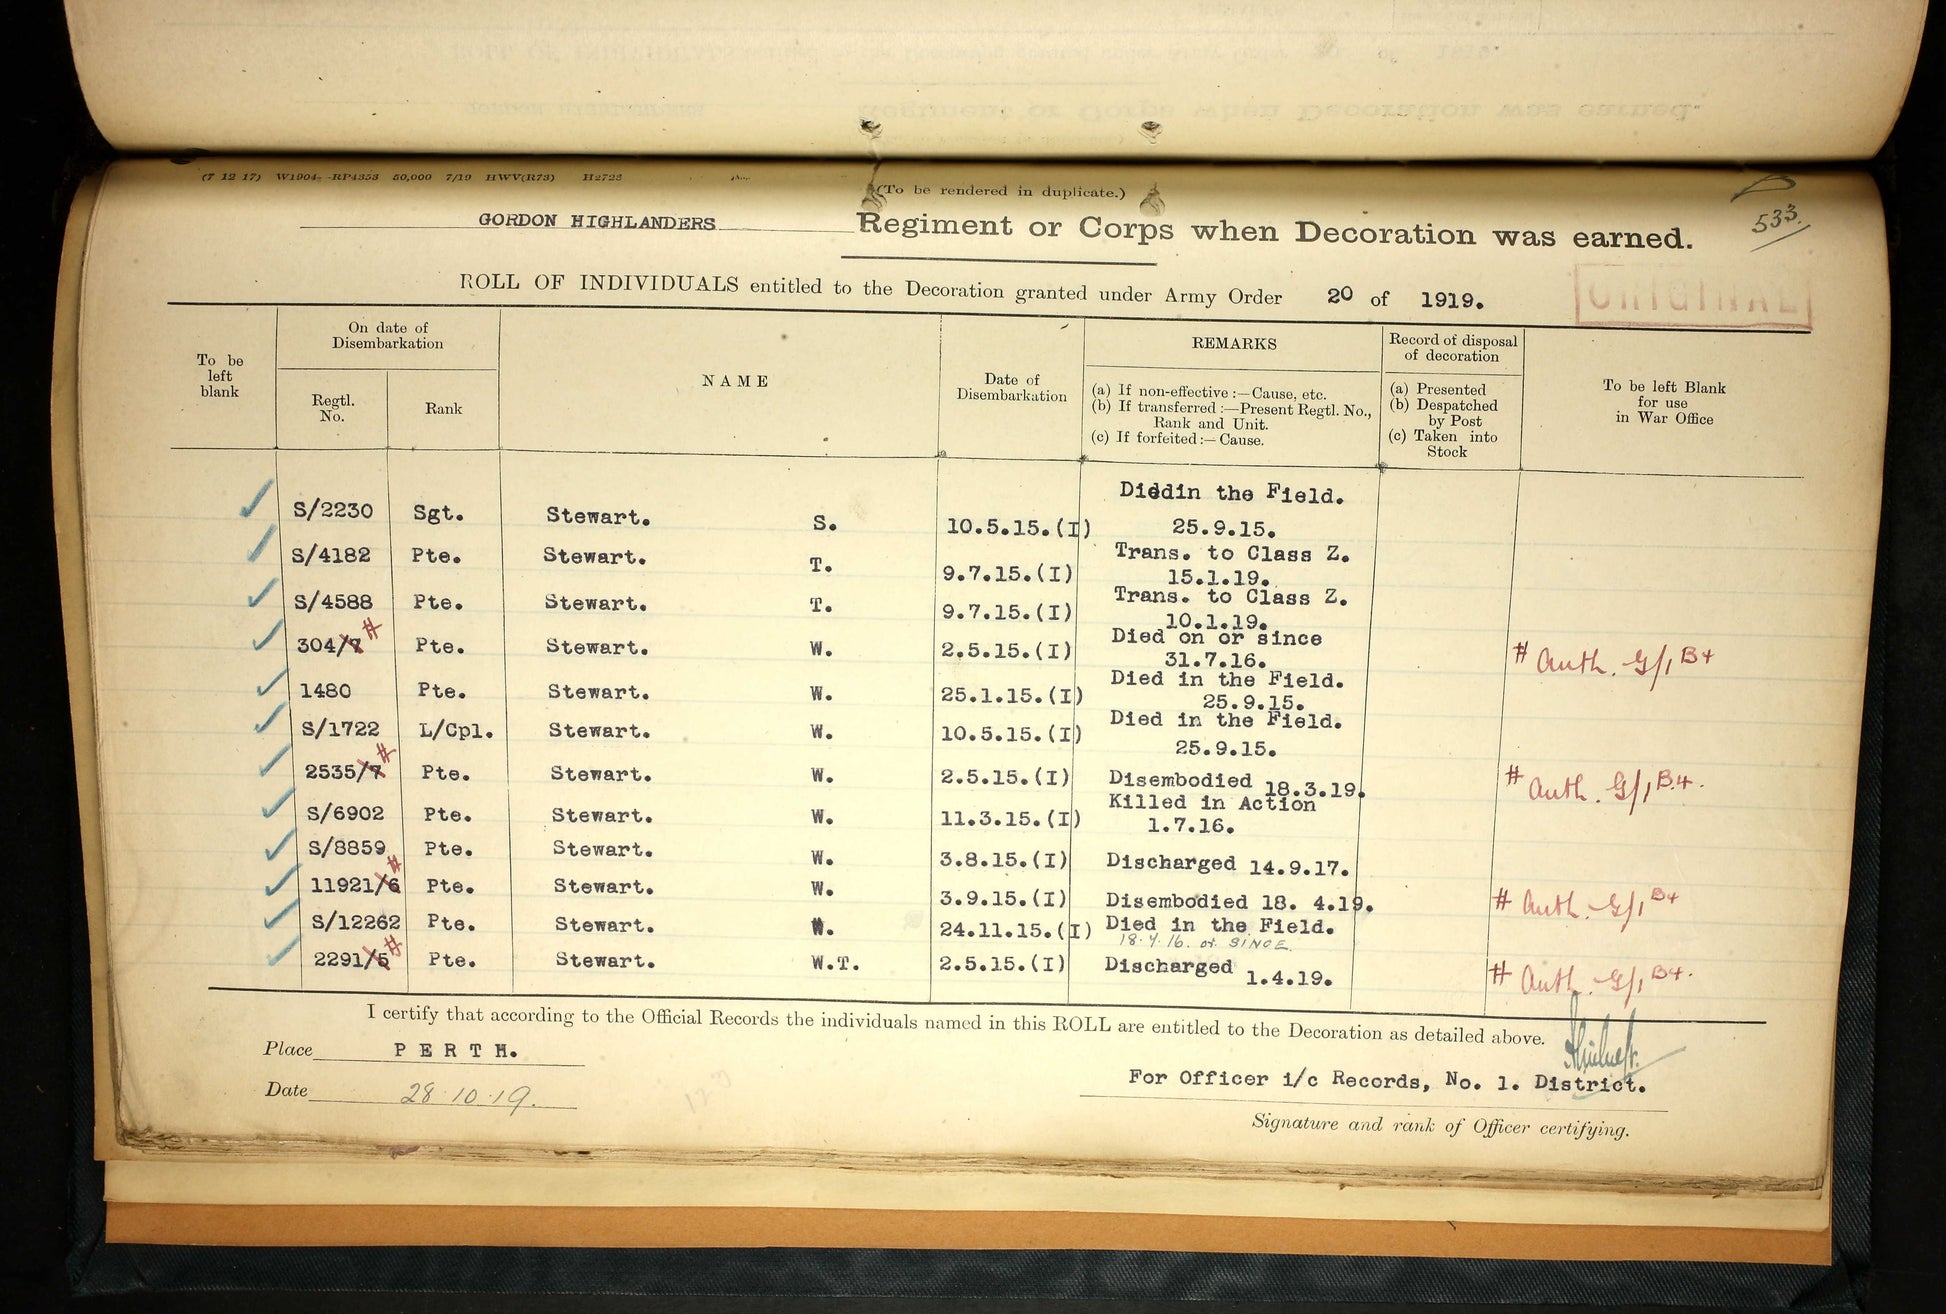 (7 12 17) W1904— RP4353 50,000 7/19 HWV(R73) H2723
(To be rendered in duplicate.)
533.
GORDON HIGHLANDERS Regiment or Corps when Decoration was earned.
ROLL OF INDIVIDUALS entitled to the Decoration granted under Army Order 20 of 1919.
ORIGINAL
To be left blank
On date of Disembarkation
Regtl. No.
Rank
NAME
Date of Disembarkation
REMARKS
(a) If non-effective :—Cause, etc.
(b) If transferred :—Present Regtl. No., Rank and Unit.
(c) If forfeited :— Cause.
Record of disposal of decoration
(a) Presented
(b) Despatched by Post
(c) Taken into Stock
To be left Blank for use in War Office
S/2230 Sgt. Stewart. S. 10.5.15.(I) Diedin the Field. 25.9.15.
S/4182 Pte. Stewart. T. 9.7.15.(I) Trans. to Class Z. 15.1.19.
S/4588 Pte. Stewart. T. 9.7.15.(I) Trans. to Class Z. 10.1.19.
304/7 # Pte. Stewart. W. 2.5.15.(I) Died on or since 31.7.16. # Auth. G/1 B4
1480 Pte. Stewart. W. 25.1.15.(I) Died in the Field. 25.9.15.
S/1722 L/Cpl. Stewart. W. 10.5.15.(I) Died in the Field. 25.9.15.
2535/7 # Pte. Stewart. W. 2.5.15.(I) Disembodied 18.3.19. # Auth. G/1 B4.
S/6902 Pte. Stewart. W. 11.3.15.(I) Killed in Action 1.7.16.
S/8859 Pte. Stewart. W. 3.8.15.(I) Discharged 14.9.17.
11921/6 # Pte. Stewart. W. 3.9.15.(I) Disembodied 18. 4.19. # Auth. G/1 B4
S/12262 Pte. Stewart. W. 24.11.15.(I) Died in the Field. 18.4.16. or SINCE.
2291/5 # Pte. Stewart. W.T. 2.5.15.(I) Discharged 1.4.19. # Auth. G/1 B4.
I certify that according to the Official Records the individuals named in this ROLL are entitled to the Decoration as detailed above.
Place PERTH.
Date 28.10.19.
For Officer i/c Records, No. 1. District.
Signature and rank of Officer certifying.